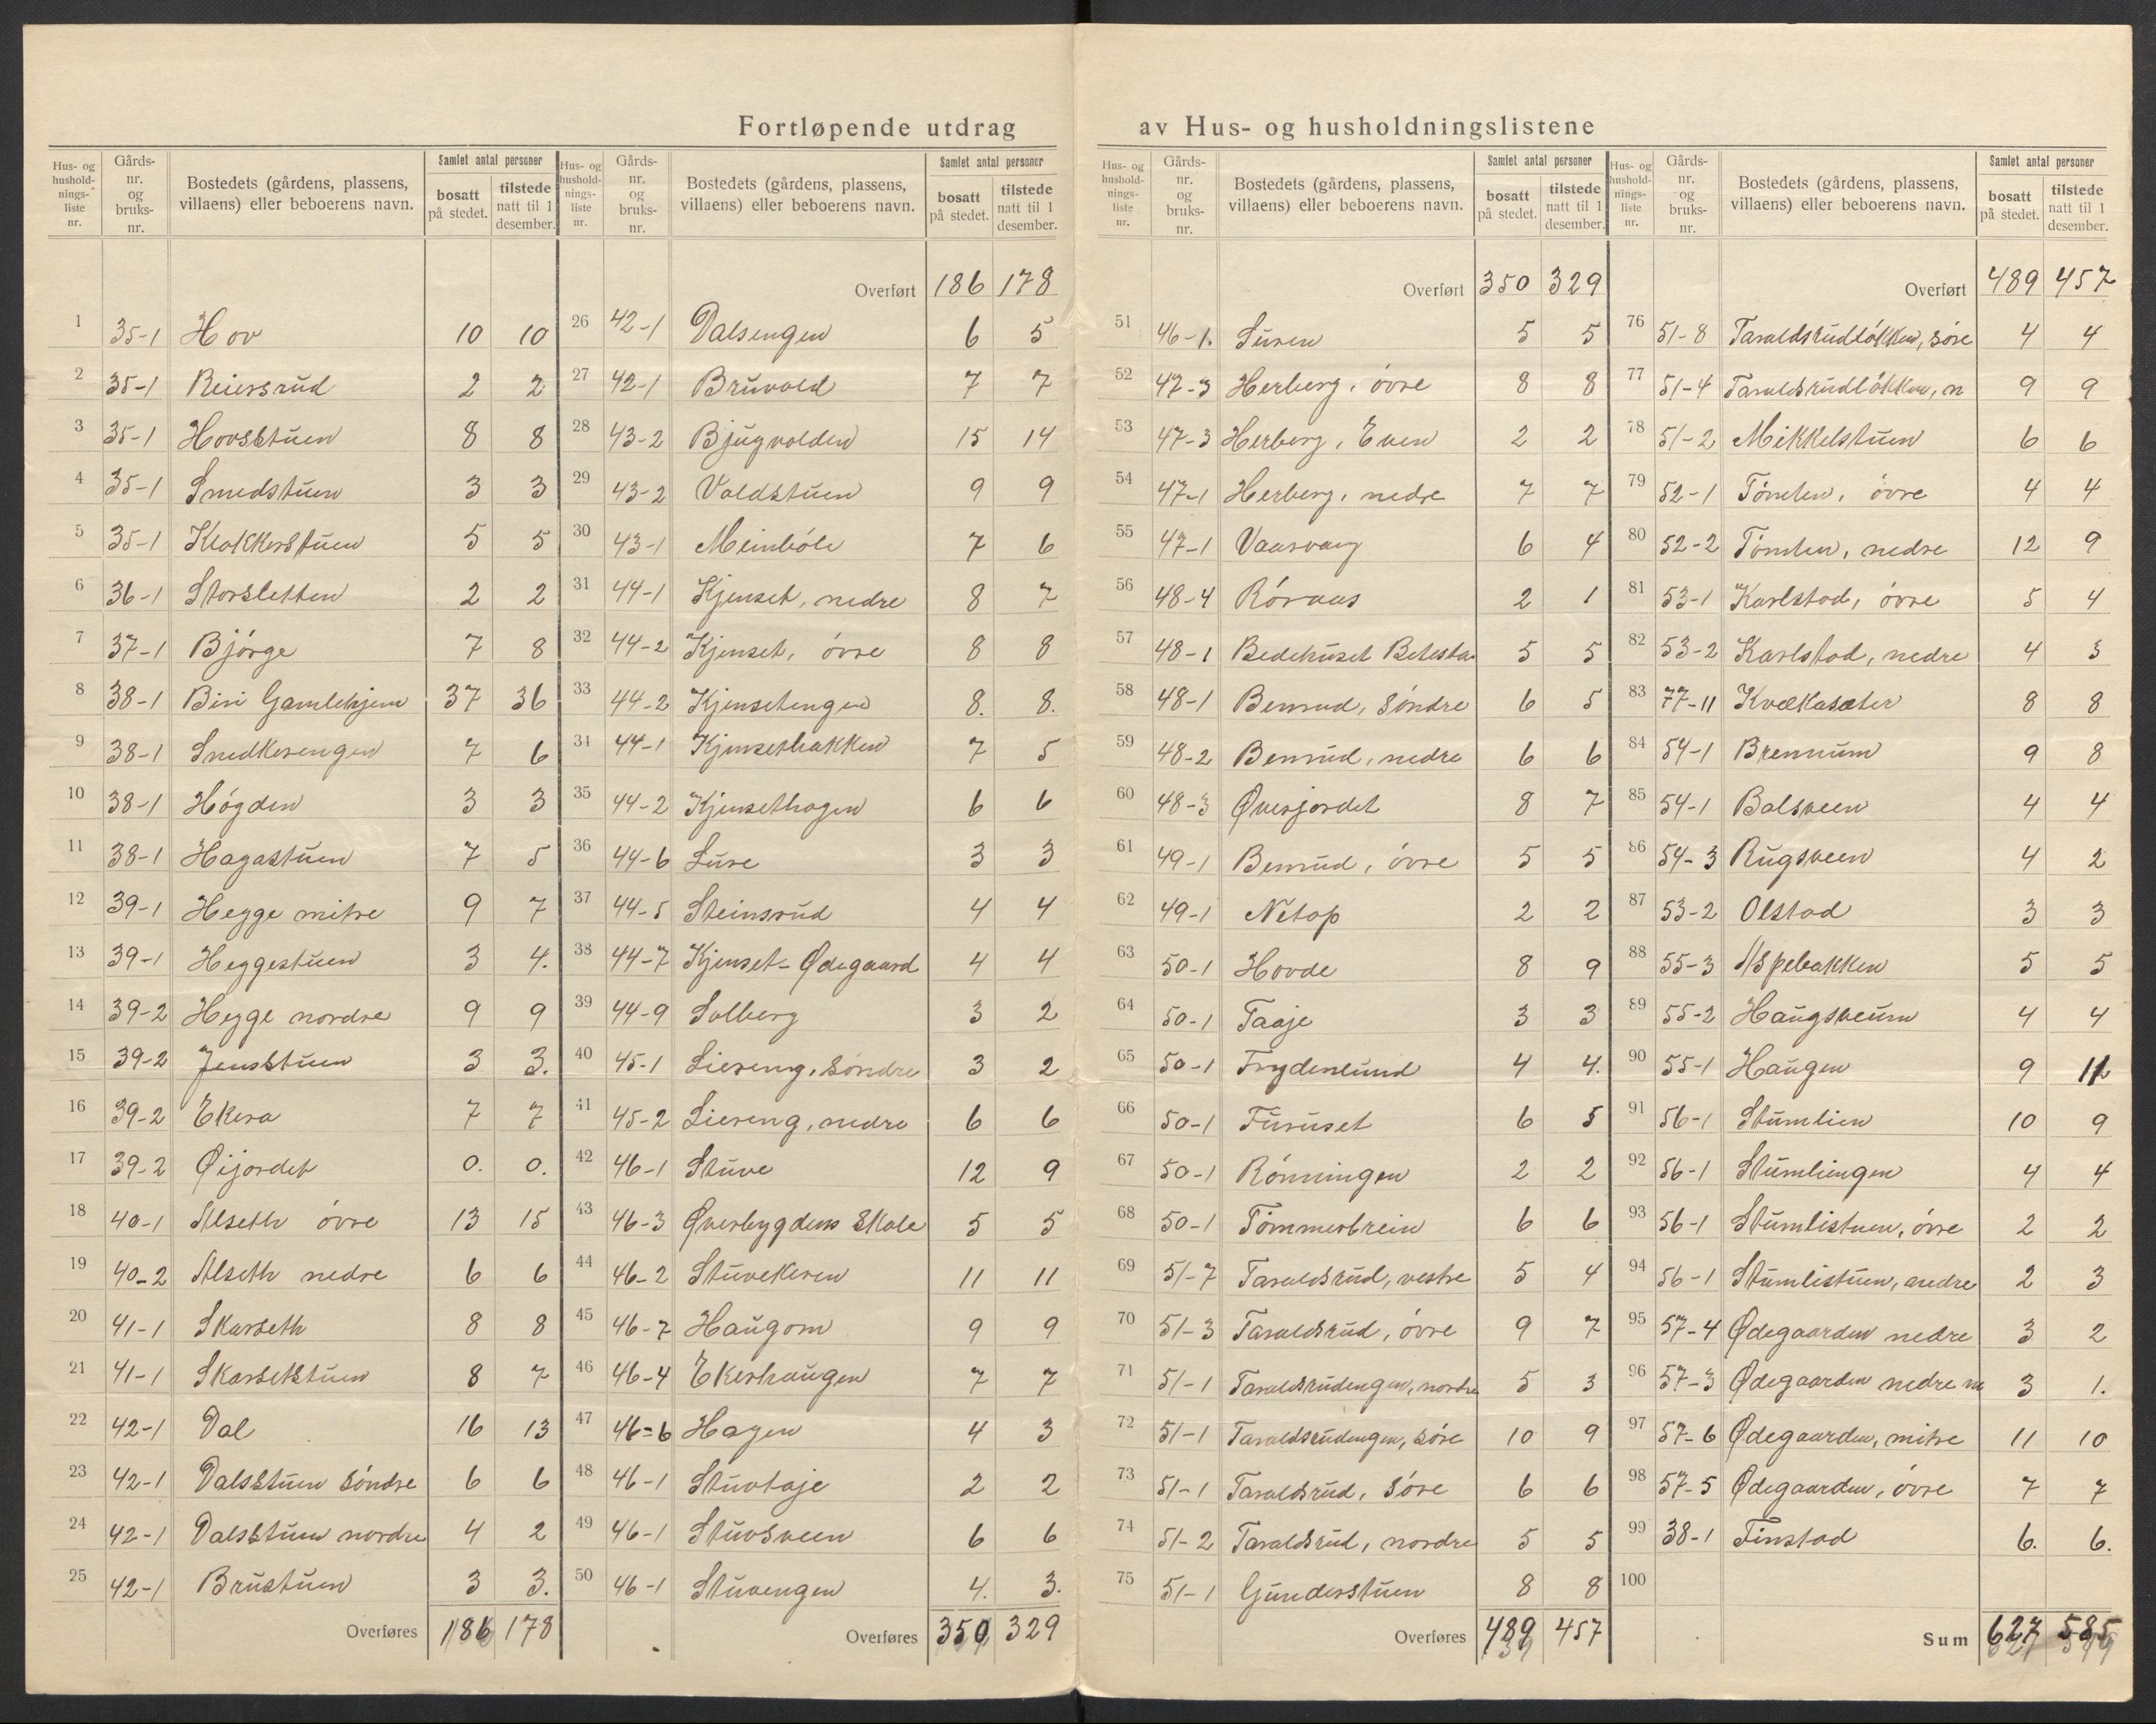 Fortløpende utdrag av Hus- og husholdningslistene
Hus- og hushold-nings-liste nr. | Gårds-nr. og bruks-nr. | Bostedets (gårdens, plassens, villaens) eller beboerens navn. | Samlet antal personer | bosatt på stedet. | tilstede natt til 1 desember.
1 35-1 Hov 10 10
2 35-1 Reiersrud 2 2
3 35-1 Hovsstuen 8 8
4 35-1 Smedstuen 3 3
5 35-1 Klokkerstuen 5 5
6 36-1 Storsletten 2 2
7 37-1 Bjørge 7 8
8 38-1 Biri Gamlehjem 37 36
9 38-1 Snedkerengen 7 6
10 38-1 Høgden 3 3
11 38-1 Hagastuen 7 5
12 39-1 Hegge mitre 9 7
13 39-1 Heggestuen 3 4.
14 39-2 Hegge nordre 9 9
15 39-2 Jensstuen 3 3.
16 39-2 Ekera 7 7
17 39-2 Øijordet 0. 0.
18 40-1 Alseth øvre 13 15
19 40-2 Alseth nedre 6 6
20 41-1 Skarseth 8 8
21 41-1 Skarsetstuen 8 7
22 42-1 Dal 16 13
23 42-1 Dalsstuen søndre 6 6
24 42-1 Dalsstuen nordre 4 2
25 42-1 Brustuen 3 3.
Overføres 186 178
Hus- og hushold-nings-liste nr. | Gårds-nr. og bruks-nr. | Bostedets (gårdens, plassens, villaens) eller beboerens navn. | Samlet antal personer | bosatt på stedet. | tilstede natt til 1 desember.
Overført 186 178
26 42-1 Dalsengen 6 5
27 42-1 Bruvold 7 7
28 43-2 Bjugvolden 15 14
29 43-2 Voldstuen 9 9
30 43-1 Meinbøle 7 6
31 44-1 Kjenset, nedre 8 7
32 44-2 Kjenset, øvre 8 8
33 44-2 Kjensetengen 8. 8.
34 44-1 Kjensetbakken 7 5
35 44-2 Kjensethagen 6 6
36 44-6 Lure 3 3
37 44-5 Steinsrud 4 4
38 44-7 Kjenset-Ødegaard 4 4
39 44-9 Solberg 3 2
40 45-1 Liereng, søndre 3 2
41 45-2 Liereng, nedre 6 6
42 46-1 Stuve 12 9
43 46-3 Øverbygdens Skole 5 5
44 46-2 Stuvekeren 11 11
45 46-7 Haugom 9 9
46 46-4 Ekerhaugen 7 7
47 46=6 Hagen 4 3
48 46-1 Stuvtaje 2 2
49 46-1 Stuvsveen 6 6
50 46-1 Stuvengen 4. 3.
Overføres 350 329
Hus- og hushold-nings-liste nr. | Gårds-nr. og bruks-nr. | Bostedets (gårdens, plassens, villaens) eller beboerens navn. | Samlet antal personer | bosatt på stedet. | tilstede natt til 1 desember.
Overført 350 329
51 46-1. Suren 5 5
52 47-3 Herberg, øvre 8 8
53 47-3 Herberg, Even 2 2
54 47-1 Herberg, nedre 7 7
55 47-1 Vaarvang 6 4
56 48-4 Røraas 2 1
57 48-1 Bedehuset Betesta. 5 5
58 48-1 Benrud, søndre 6 5
59 48-2 Benrud, nedre 6 6
60 48-3 Øverjordet 8 7
61 49-1 Benrud, øvre 5 5
62 49-1 Netop 2 2
63 50-1 Hovde 8 9
64 50-1 Taaje 3 3
65 50-1 Frydenlund 4 4.
66 50-1 Furuset 6 5
67 50-1 Rønningen 2 2
68 50-1 Tømmerbrein 6 6
69 51-7 Taraldsrud, vestre 5 4
70 51-3 Taraldsrud, øvre 9 7
71 51-1 Taraldsrudengen, nordre 5 3
72 51-1 Taraldsrudengen, søre 10 9
73 51-1 Taraldsrud, søre 6 6
74 51-2 Taraldsrud, nordre 5 5
75 51-1 Gundersstuen 8 8
Overføres 489 457
Hus- og hushold-nings-liste nr. | Gårds-nr. og bruks-nr. | Bostedets (gårdens, plassens, villaens) eller beboerens navn. | Samlet antal personer | bosatt på stedet. | tilstede natt til 1 desember.
Overført 489 457
76 51-8 Taraldsrudløkken, søre 4 4
77 51-4 Taraldsrudløkken, n 9 9
78 51-2 Mikkelstuen 6 6
79 52-1 Tømten, øvre 4 4
80 52-2 Tømten, nedre 12 9
81 53-1 Karlstad, øvre 5 4
82 53-2 Karlstad, nedre 4 3
83 77-11 Kvækasæter 8 8
84 54-1 Brennum 9 8
85 54-1 Balsveen 4 4
86 54-3 Rugsveen 4 2
87 53-2 Olstad 3 3
88 55-3 Aspebakken 5 5
89 55-2 Haugsveum 4 4
90 55-1 Haugen 9 11
91 56-1 Stumlien 10 9
92 56-1 Stumliengen 4 4
93 56-1 Stumlistuen, øvre 2 2
94 56-1 Stumlistuen, nedre 2 3
95 57-4 Ødegaarden nedre 3 2
96 57-3 Ødegaarden nedre m 3 1.
97 57-6 Ødegaarden, mitre 11 10
98 57-5 Ødegaarden, øvre 7 7
99 38-1 Finstad 6. 6.
100
Sum 627 585